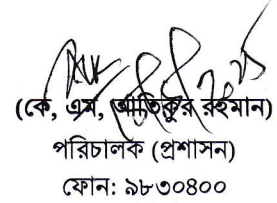 (কে, এম, আতিকুর রহমান)
পরিচালক (প্রশাসন)
ফোন: ৯৮৩০৪০০